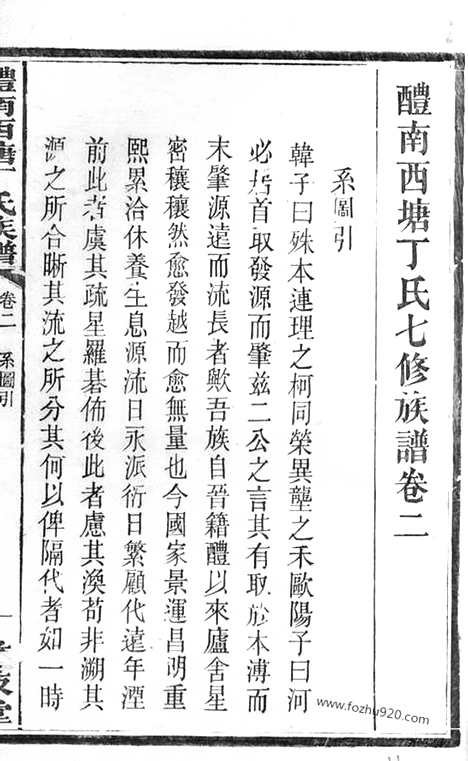 醴南西塘丁氏七修族譜卷二
系圖引
韓子曰殊本連理之柯同榮異壟之禾歐陽子曰河
必括首取發源而肇兹二公之言其有取於本溥而
末肇源遠而流長者歟吾族自晉籍醴以來廬舍星
密穰穰然愈發越而愈無量也今國家景運昌明重
熙累洽休養生息源流日永派衍日繁顧代遠年湮
前此者虞其疏星羅碁佈後此者慮其渙苟非溯其
源之所合晰其流之所分其何以俾隔代者如一時
醴南西塘丁氏族譜
卷二
系圖引
一
www.fozhu920.com